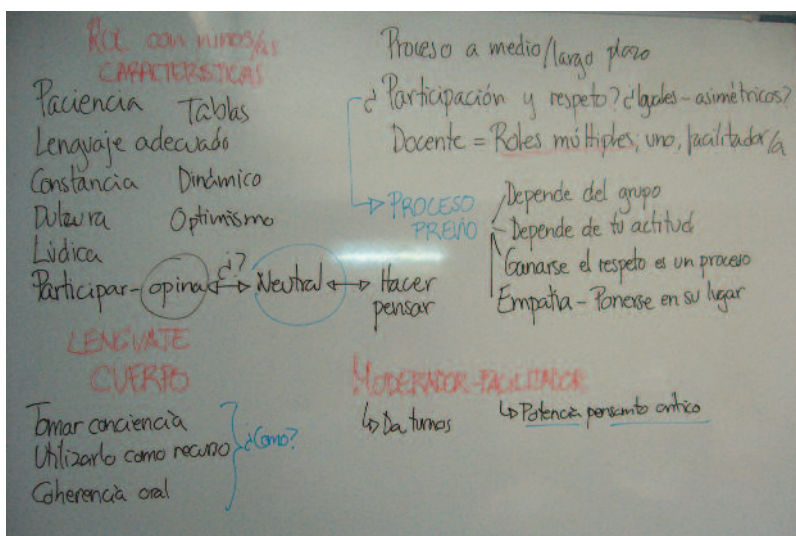 Rol con niños/as
CARACTERÍSTICAS
Paciencia Tablas
Lenguaje adecuado
Constancia Dinámico
Dulzura Optimismo
Lúdica
Participar - opina ¿? Neutral Hacer
pensar
LENGUAJE
CUERPO
Tomar conciencia
Utilizarlo como recurso ¿Cómo?
Coherencia oral
Proceso a medio/largo plazo
¿Participación y respeto? ¿Iguales - asimétricos?
Docente = Roles múltiples; uno, facilitador/a
PROCESO
PREVIO
Depende del grupo
Depende de tu actitud
Ganarse el respeto es un proceso
Empatía - Ponerse en su lugar
MODERADOR-FACILITADOR
Da turnos
Potencia pensamto crítico